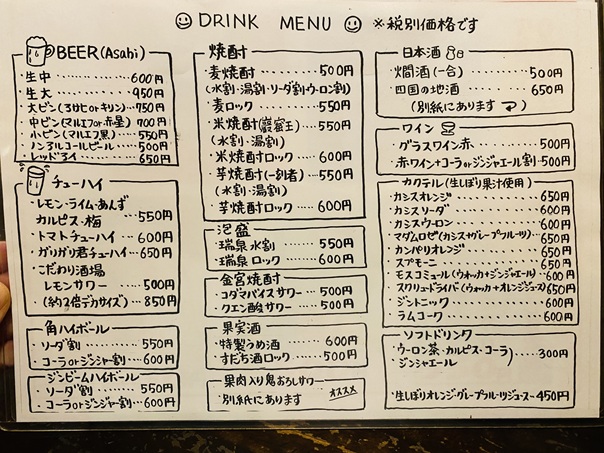 DRINK MENU ※税別価格です
BEER(Asahi)
・生中 600円
・生大 950円
・大ビン(ろせ比orキリン) 750円
・中ビン(マルエフor赤星) 700円
・小ビン(マルエフ黒) 550円
・ノンアルコールビール 500円
・レッドアイ 650円
チューハイ
・レモン・ライム・あんず
カルピス・梅 550円
・トマトチューハイ 600円
・ガリガリ君チューハイ 650円
・こだわり酒場
レモンサワー 500円
・(約2倍デカサイズ) 850円
角ハイボール
・ソーダ割 550円
・コーラorジンジャー割 600円
ジンビームハイボール
・ソーダ割 550円
・コーラorジンジャー割 600円
焼酎
・麦焼酎 500円
(水割・湯割・ソーダ割・ウーロン割)
・麦ロック 550円
・米焼酎 550円
(水割・湯割)
・米焼酎ロック 600円
・芋焼酎(一刻者) 550円
(水割・湯割)
・芋焼酎ロック 600円
泡盛
・瑞泉水割 550円
・瑞泉ロック 600円
金宮焼酎
・コダマバイスサワー 500円
・クエン酸サワー 500円
果実酒
・特製うめ酒 600円
・すだち酒ロック 500円
果肉入り鬼おろしサワー
・別紙にあります オススメ
日本酒
・燗酒(一合) 500円
・四国の地酒 650円
(別紙にあります)
ワイン
・グラスワイン赤 500円
・赤ワイン+コーラorジンジャエール割 500円
カクテル(生しぼり果汁使用)
・カシスオレンジ 650円
・カシスソーダ 600円
・カシスウーロン 600円
・マダムロゼ(カシス+グレープフルーツ) 650円
・カンパリオレンジ 650円
・スプモーニ 650円
・モスコミュール(ウォッカ+ジンジャエール) 600円
・スクリュードライバ(ウォッカ+オレンジジュース) 650円
・ジントニック 600円
・ラムコーク 600円
ソフトドリンク
・ウーロン茶・カルピス・コーラ
ジンジャエール 300円
・生しぼりオレンジ・グレープフルーツジュース 450円